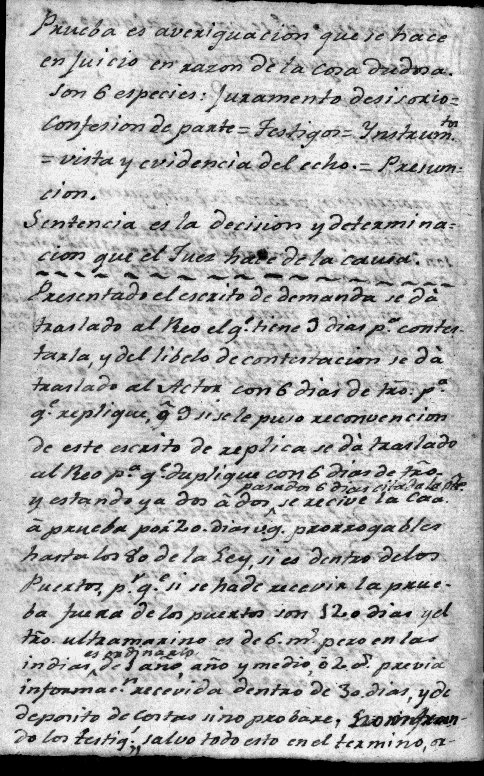 Prueba es averiguacion que se hace
en Juicio en razon de la cosa dudosa.
son 6 especies: Juramento desisorio=
confesion de parte= Testigos= Ynstrum.tos
= vista y evidencia del echo.= Presun-
cion.
Sentencia es la decision y determina=
cion que el Juez hace de la causa.
Presentado el escrito de demanda se dà
traslado al Reo el q.e tiene 9 dias p.a contes-
tarla, y del libelo de contestacion se dà
traslado al Actor con 6 dias de tro. p.a
q.e replique, ô 9 si se le puso reconvencion
de este escrito de replica se dà traslado
al Reo p.a q.e duplique con 6 dias de tro.
pasados 6 dias citada la pte.
y estando ya dos â dos, se recive la Caa.
â prueba por 20. dias prorrogables
hasta los 80 de la Ley, si es dentro de los
Puertos, p.r q.e si se ha de recevir la prue-
ba fuera de los puertos son 120 dias y el
tro. ultramarino es de 6. m.s pero en las
es ordinario
indias, de 1 año, año y medio, ô 2 a.s previa
informac.n recevida dentro de 30 dias, y de
deposito de costas sino probare,
do los testig.s, salvo todo esto en el termino, or-